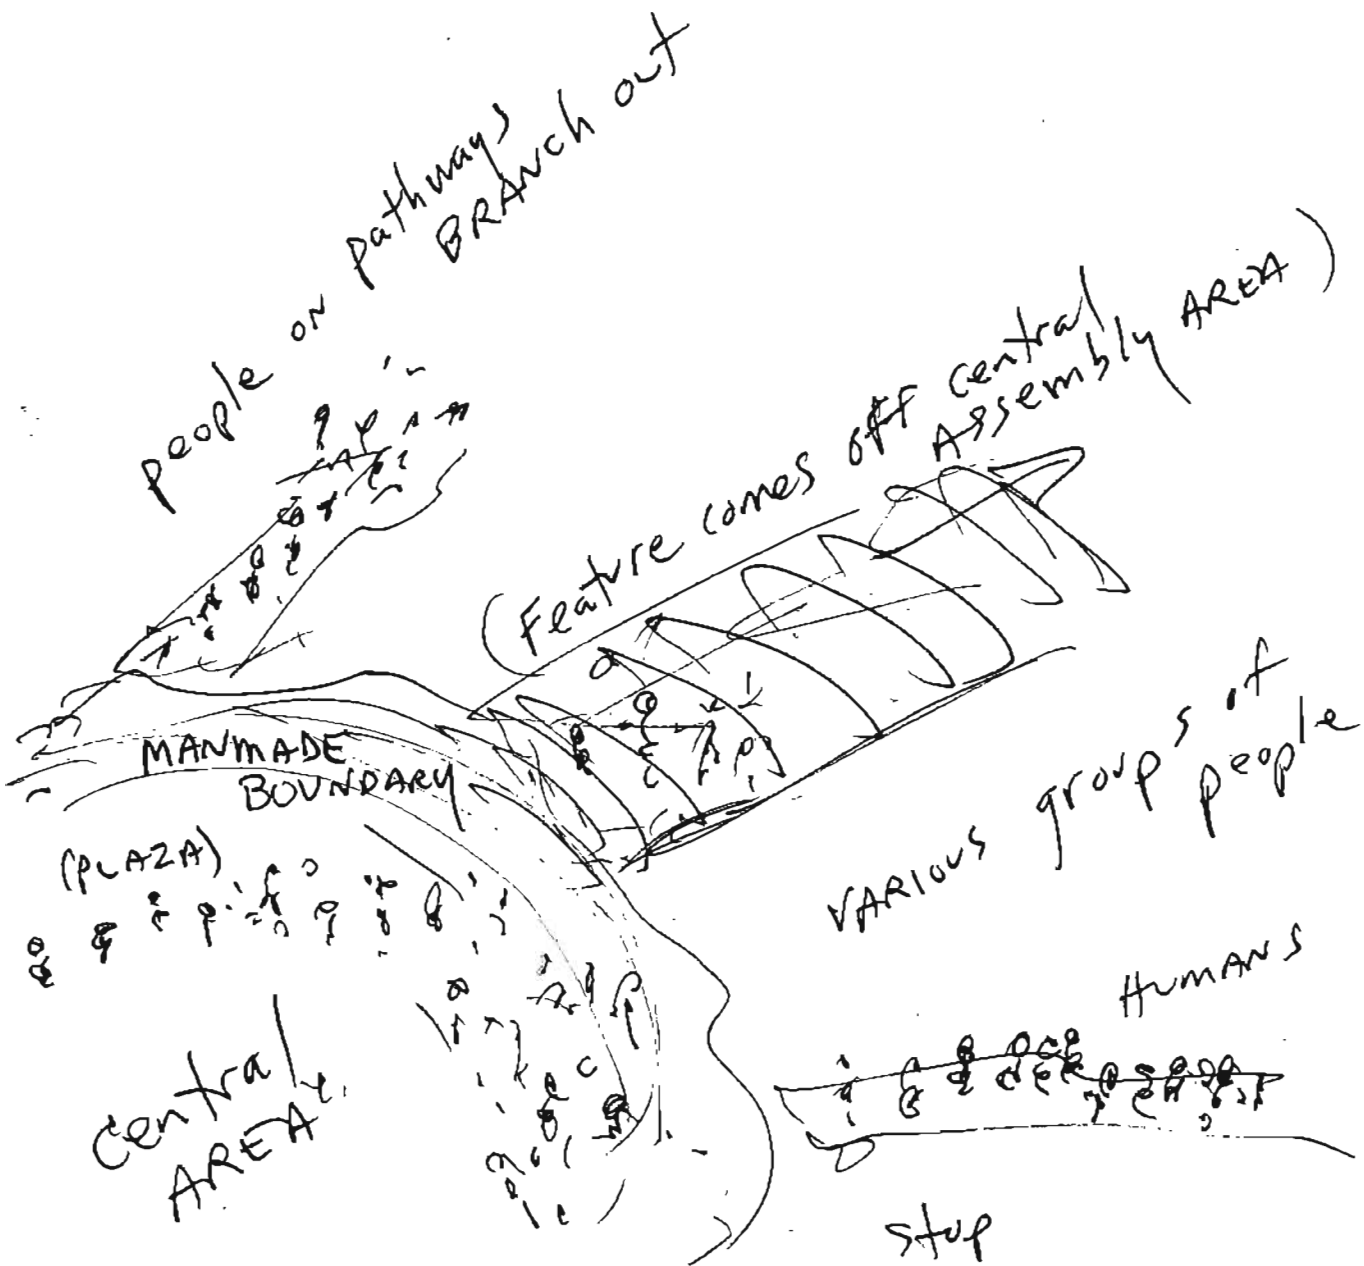 people on pathways
BRANCH out
(Feature comes off central
Assembly AREA)
MANMADE
BOUNDARY
(PLAZA)
VARIOUS groups of
people
HUMANS
central
AREA
stop